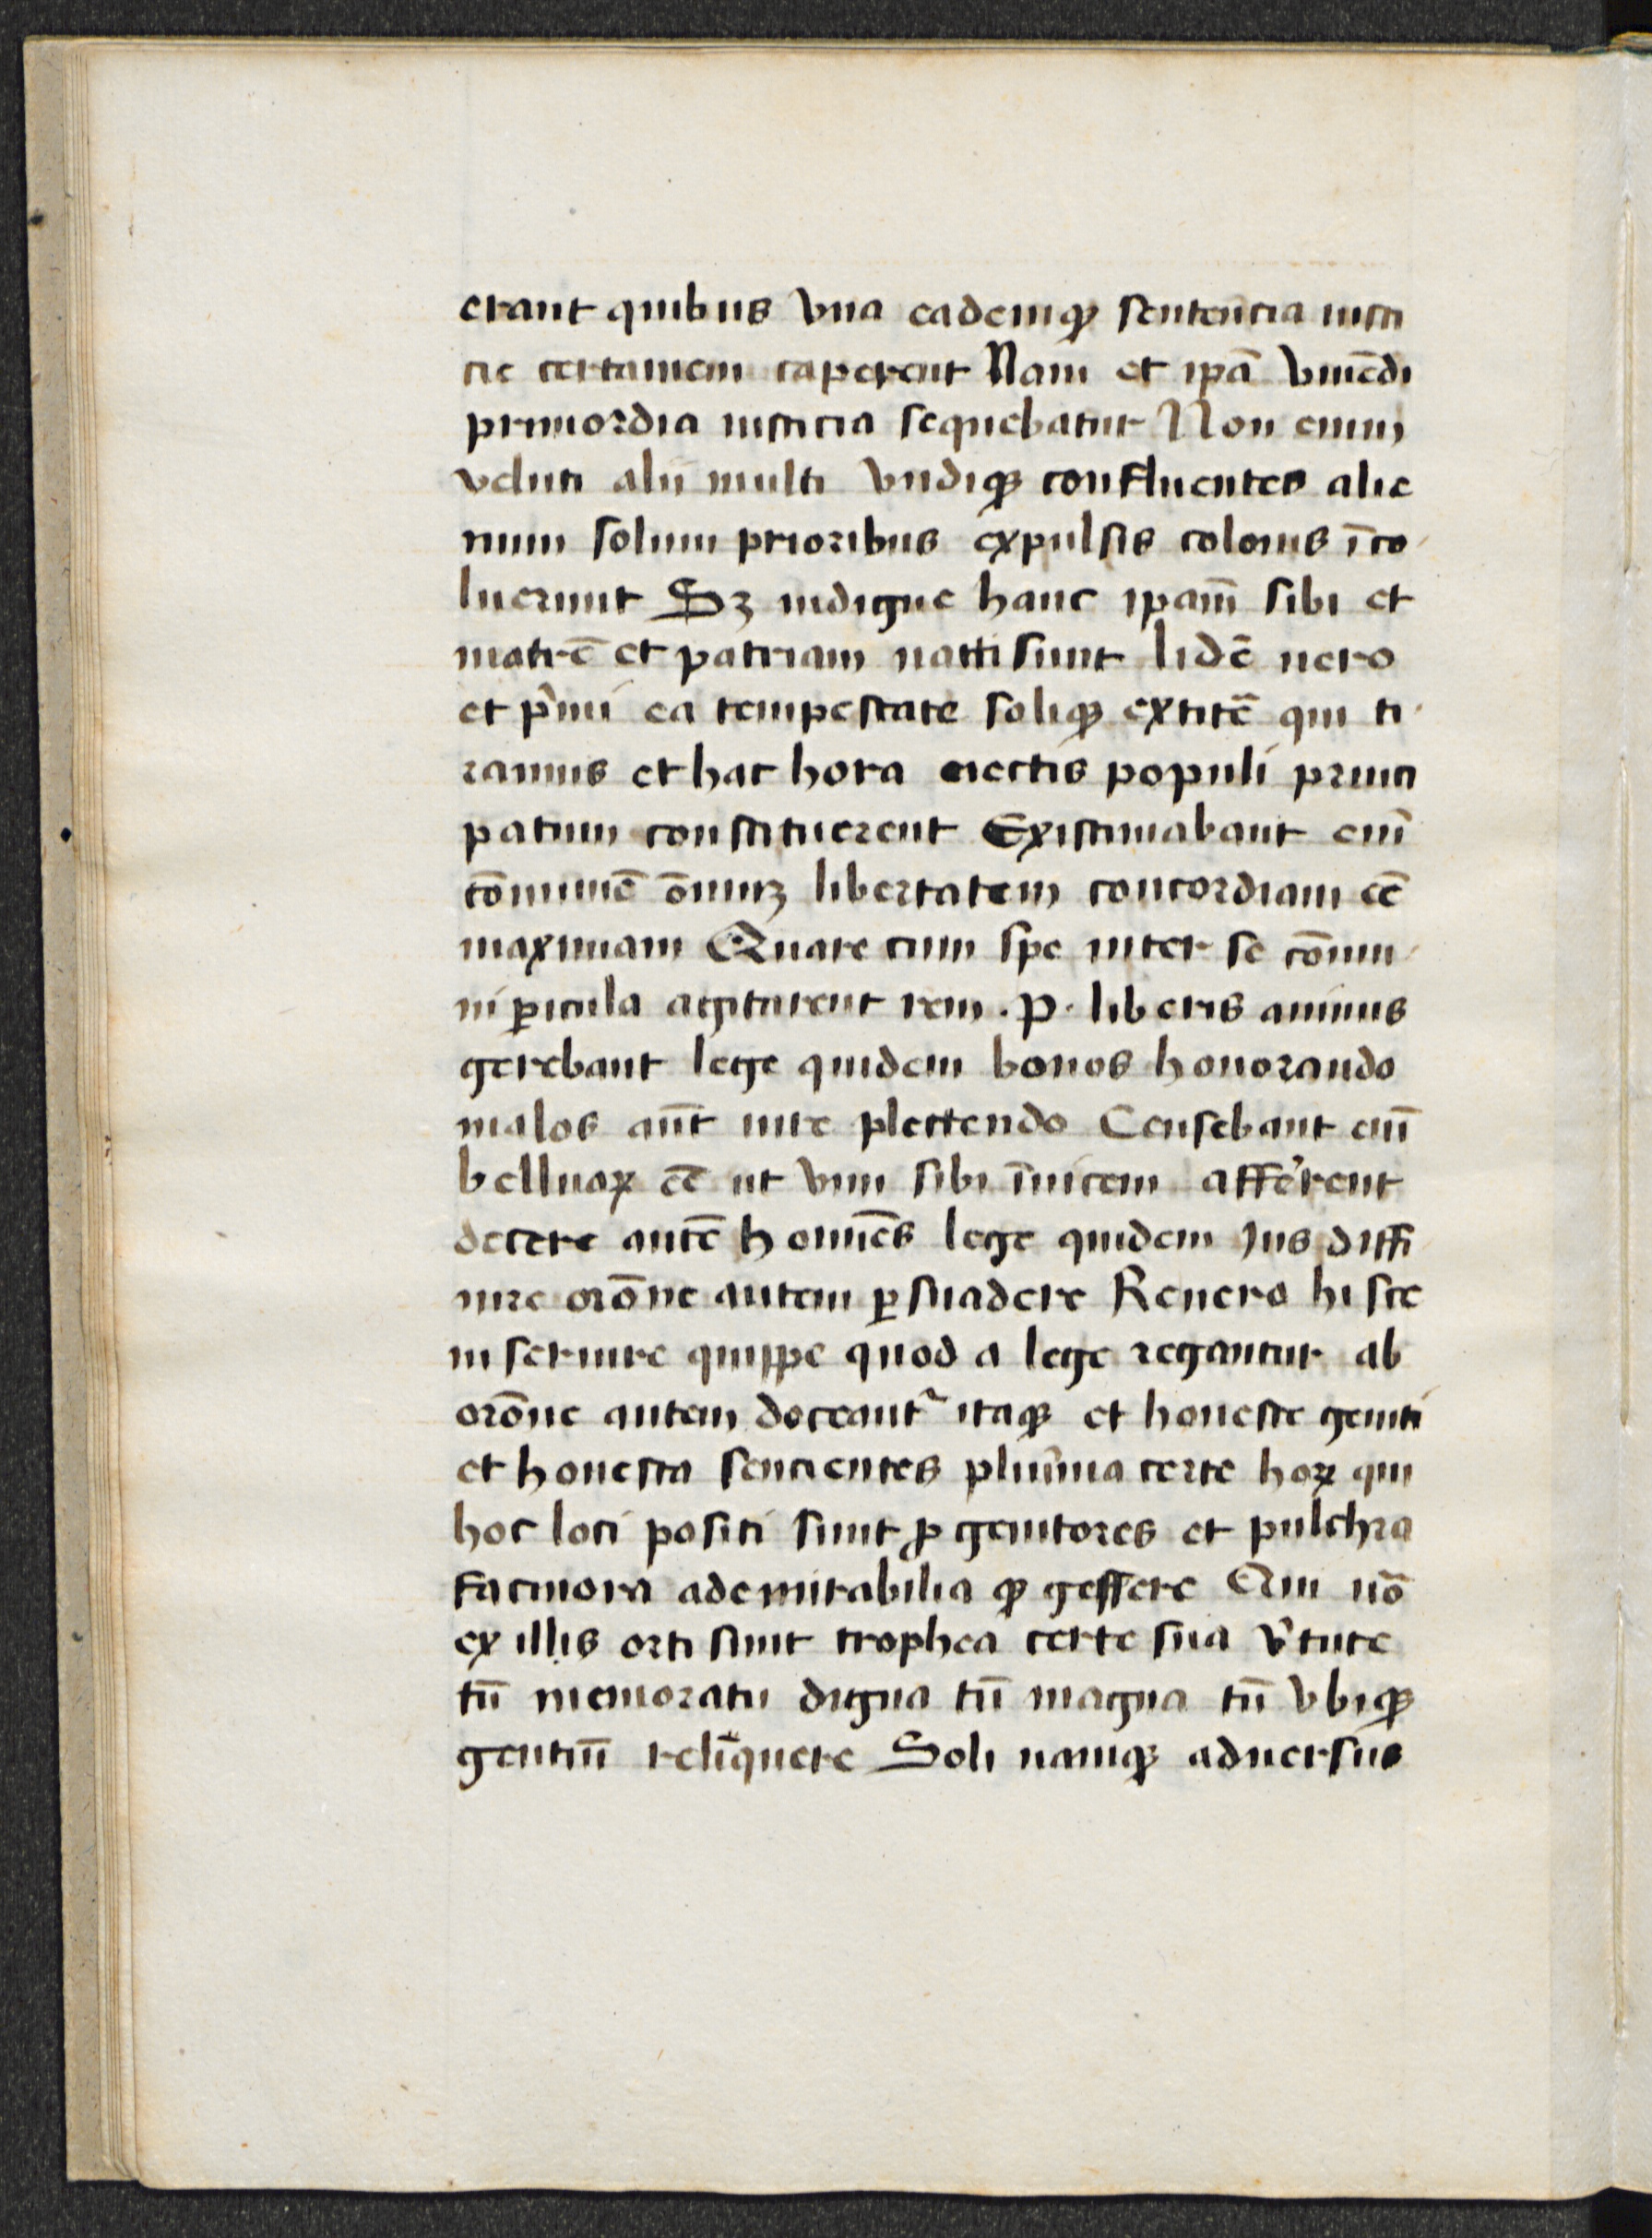 erant quibus vna eademqꝫ sentencia iusti
cie certamen caperent Nam et ipā viuēdi
primordia iusticia sequebatur Non enim
veluti alii multi vndiqꝫ confluentes alie
num solum prioribus expulsis colonis īco
luerunt Sꝫ indigne hanc ipam̄ sibi et
matrē et patriam nacti sunt Iidē uero
et pͥmi ea tempestate soliqꝫ extitē qui ti
rannis et hac hora eiectis populi princi
patum constituerent Existimabant eni̅
cōmunē om̄niꝫ libertatem concordiam ee̅
maximam Quare cum spe inter se cōmu
ni ꝑicula agitarent rem .P. liberis animis
gerebant lege quidem bonos honorando
malos aūt iure plectendo Censebant eni̅
belluaꝝ ee̅ ut vim sibi īuicem afferrent
decere autē homīes lege quidem ius diffi
nire orōne autem ꝑsuadere Reuero hisce
inseruire quippe quod a lege regantur ab
orōne autem doceantᷣ itaqꝫ et honeste geniti
et honesta sencientes plurīma certe hoꝝ qui
hoc loci positi sunt ꝓgenitores et pulchra
facinora ademirabilia qꝫ gessere Qui nō
ex illis orti sunt trophea certe sua vͬtute
tū memoratu digna tū magna tū vbiqꝫ
gentiū reliquere Soli namqꝫ aduersus